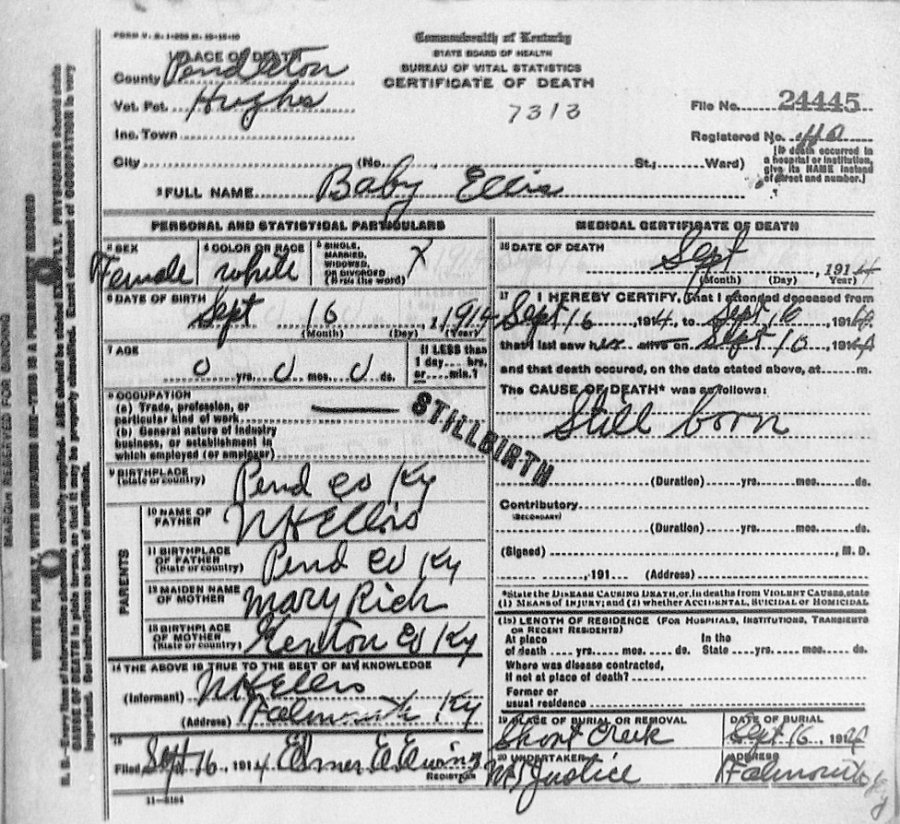 FORM V. S. 1-
Commonwealth of Kentucky
STATE BOARD OF HEALTH
BUREAU OF VITAL STATISTICS
CERTIFICATE OF DEATH
7313
PLACE OF DEATH
County Pendleton
Vot. Pct. Hughs
Inc. Town
City (No. St.; Ward)
File No. 24445
Registered No.
(If death occurred in
a hospital or institution,
give its NAME instead
of street and number.)
2 FULL NAME Baby Ellis
PERSONAL AND STATISTICAL PARTICULARS
3 SEX Female
4 COLOR OR RACE white
5 SINGLE, MARRIED, WIDOWED, OR DIVORCED (Write the word) X
6 DATE OF BIRTH Sept 16 1914
(Month) (Day) (Year)
7 AGE 0 yrs. 0 mos. 0 ds.
If LESS than 1 day ... hrs. or ... min.?
8 OCCUPATION
(a) Trade, profession, or
particular kind of work
(b) General nature of industry
business, or establishment in
which employed (or employer)
STILLBIRTH
9 BIRTHPLACE (State or country) Pend co Ky
PARENTS
10 NAME OF FATHER N H Ellis
11 BIRTHPLACE OF FATHER (State or country) Pend co Ky
12 MAIDEN NAME OF MOTHER Mary Rich
13 BIRTHPLACE OF MOTHER (State or country) Kenton Co Ky
14 THE ABOVE IS TRUE TO THE BEST OF MY KNOWLEDGE
(Informant) N H Ellis
(Address) Falmouth Ky
15
Filed Sept 16, 1914 Elmer
REGISTRAR
11-3184
MEDICAL CERTIFICATE OF DEATH
16 DATE OF DEATH
Sept , 1914
(Month) (Day) (Year)
17 I HEREBY CERTIFY, That I attended deceased from
Sept 16 , 1914, to Sept 16 , 1914,
that I last saw her alive on Sept 16 , 1914,
and that death occured, on the date stated above, at m.
The CAUSE OF DEATH* was as follows:
Still born
(Duration) yrs. mos. ds.
Contributory
(SECONDARY)
(Duration) yrs. mos. ds.
(Signed) , M. D.
, 191 (Address)
*State the DISEASE CAUSING DEATH, or, in deaths from VIOLENT CAUSES, state
(1) MEANS OF INJURY; and (2) whether ACCIDENTAL, SUICIDAL or HOMICIDAL
18 LENGTH OF RESIDENCE (FOR HOSPITALS, INSTITUTIONS, TRANSIENTS
OR RECENT RESIDENTS)
At place of death yrs. mos. ds. In the State yrs. mos. ds.
Where was disease contracted,
if not at place of death?
Former or
usual residence
19 PLACE OF BURIAL OR REMOVAL Short Creek
DATE OF BURIAL Sept 16, 1914
20 UNDERTAKER Justice
ADDRESS Falmouth Ky
MARGIN RESERVED FOR BINDING
WRITE PLAINLY, WITH UNFADING INK—THIS IS A PERMANENT RECORD
N. B.—Every item of information should be carefully supplied. AGE should be stated EXACTLY. PHYSICIANS should state
CAUSE OF DEATH in plain terms, so that it may be properly classified. Exact statement of OCCUPATION is very
important. See instructions on back of certificate.